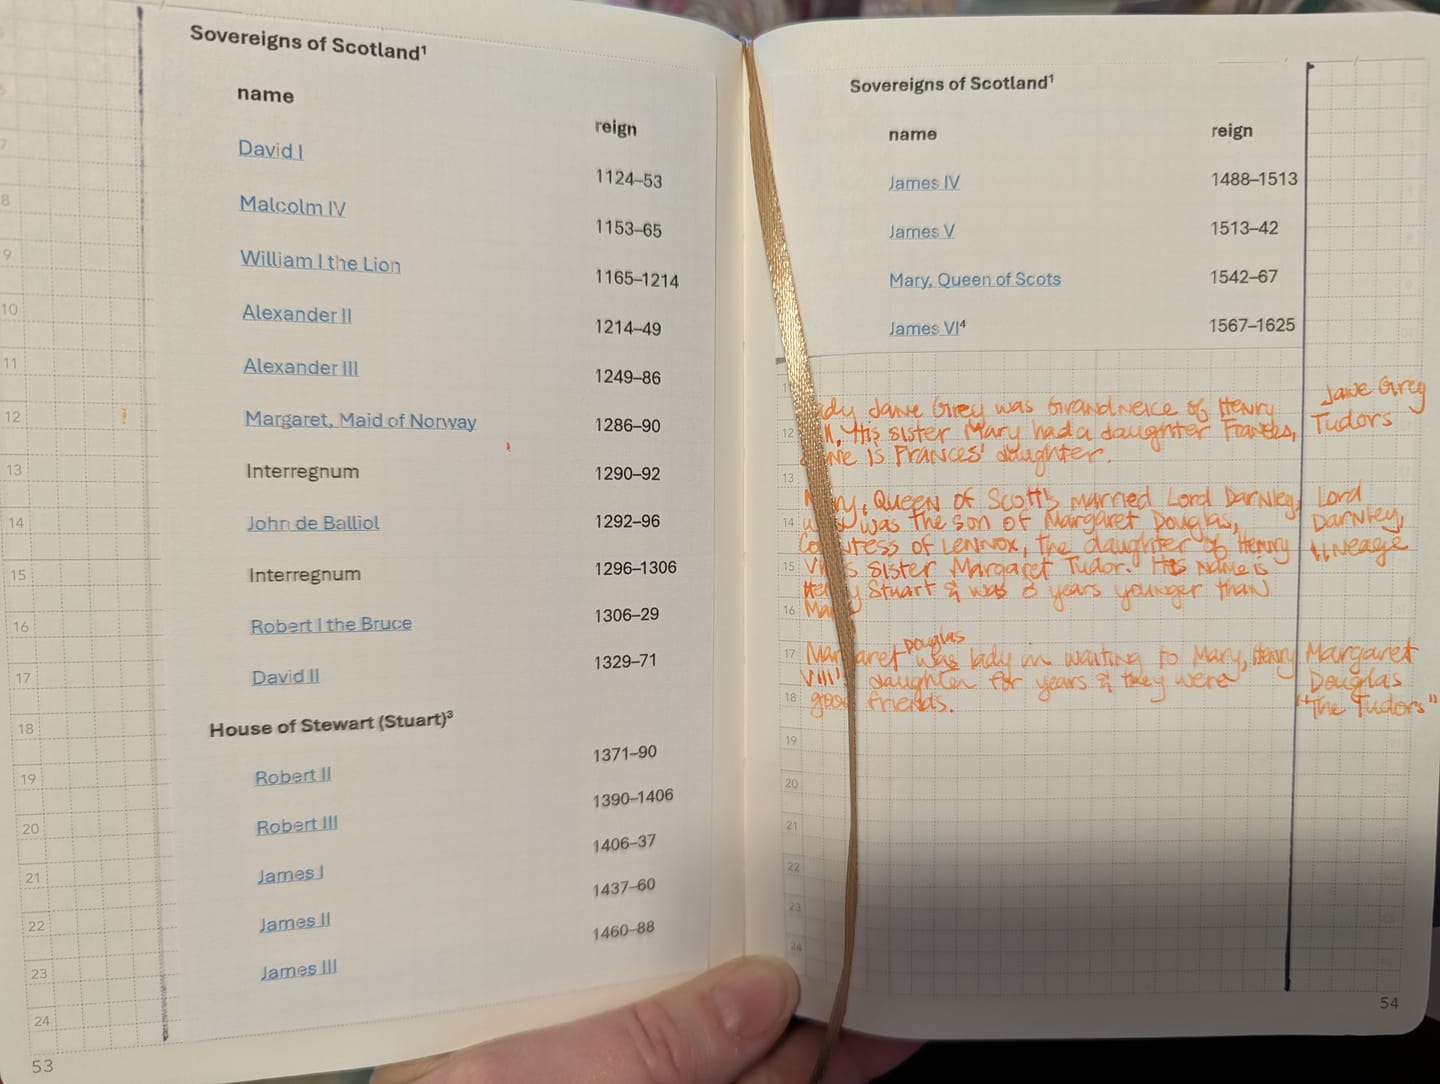 Sovereigns of Scotland¹
name
reign
David I
1124–53
Malcolm IV
1153–65
William I the Lion
1165–1214
Alexander II
1214–49
Alexander III
1249–86
Margaret, Maid of Norway
1286–90
Interregnum
1290–92
John de Balliol
1292–96
Interregnum
1296–1306
Robert I the Bruce
1306–29
David II
1329–71
House of Stewart (Stuart)³
Robert II
1371–90
Robert III
1390–1406
James I
1406–37
James II
1437–60
James III
1460–88
7
8
9
10
11
12
13
14
15
16
17
18
19
20
21
22
23
24
53
Sovereigns of Scotland¹
name reign
James IV 1488–1513
James V 1513–42
Mary, Queen of Scots 1542–67
James VI⁴ 1567–1625
Jane Grey
Tudors
dy Jane Grey was Grandneice of Henry
His sister Mary had a daughter Frances,
is Frances' daughter.
Lord
Darnley,
lineage
ry, Queen of Scott's married Lord Darnley,
was the son of Margaret Douglas,
Countess of Lennox, the daughter of Henry
VIII's sister Margaret Tudor. His name is
Henry Stuart & was 3 years younger than
Mary
Margaret
Douglas
"The Tudors"
Margaret Douglas was lady in waiting to Mary, Henry
VIII's daughter for years & they were
good friends.
12
13
14
15
16
17
18
19
20
21
22
23
24
54